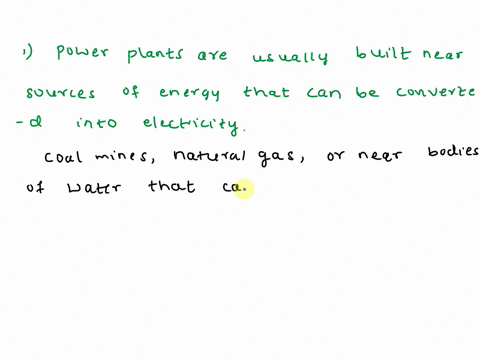 1) Power plants are usually built near
sources of energy that can be converte
-d into electricity.
coal mines, natural gas, or near bodies
of water that ca